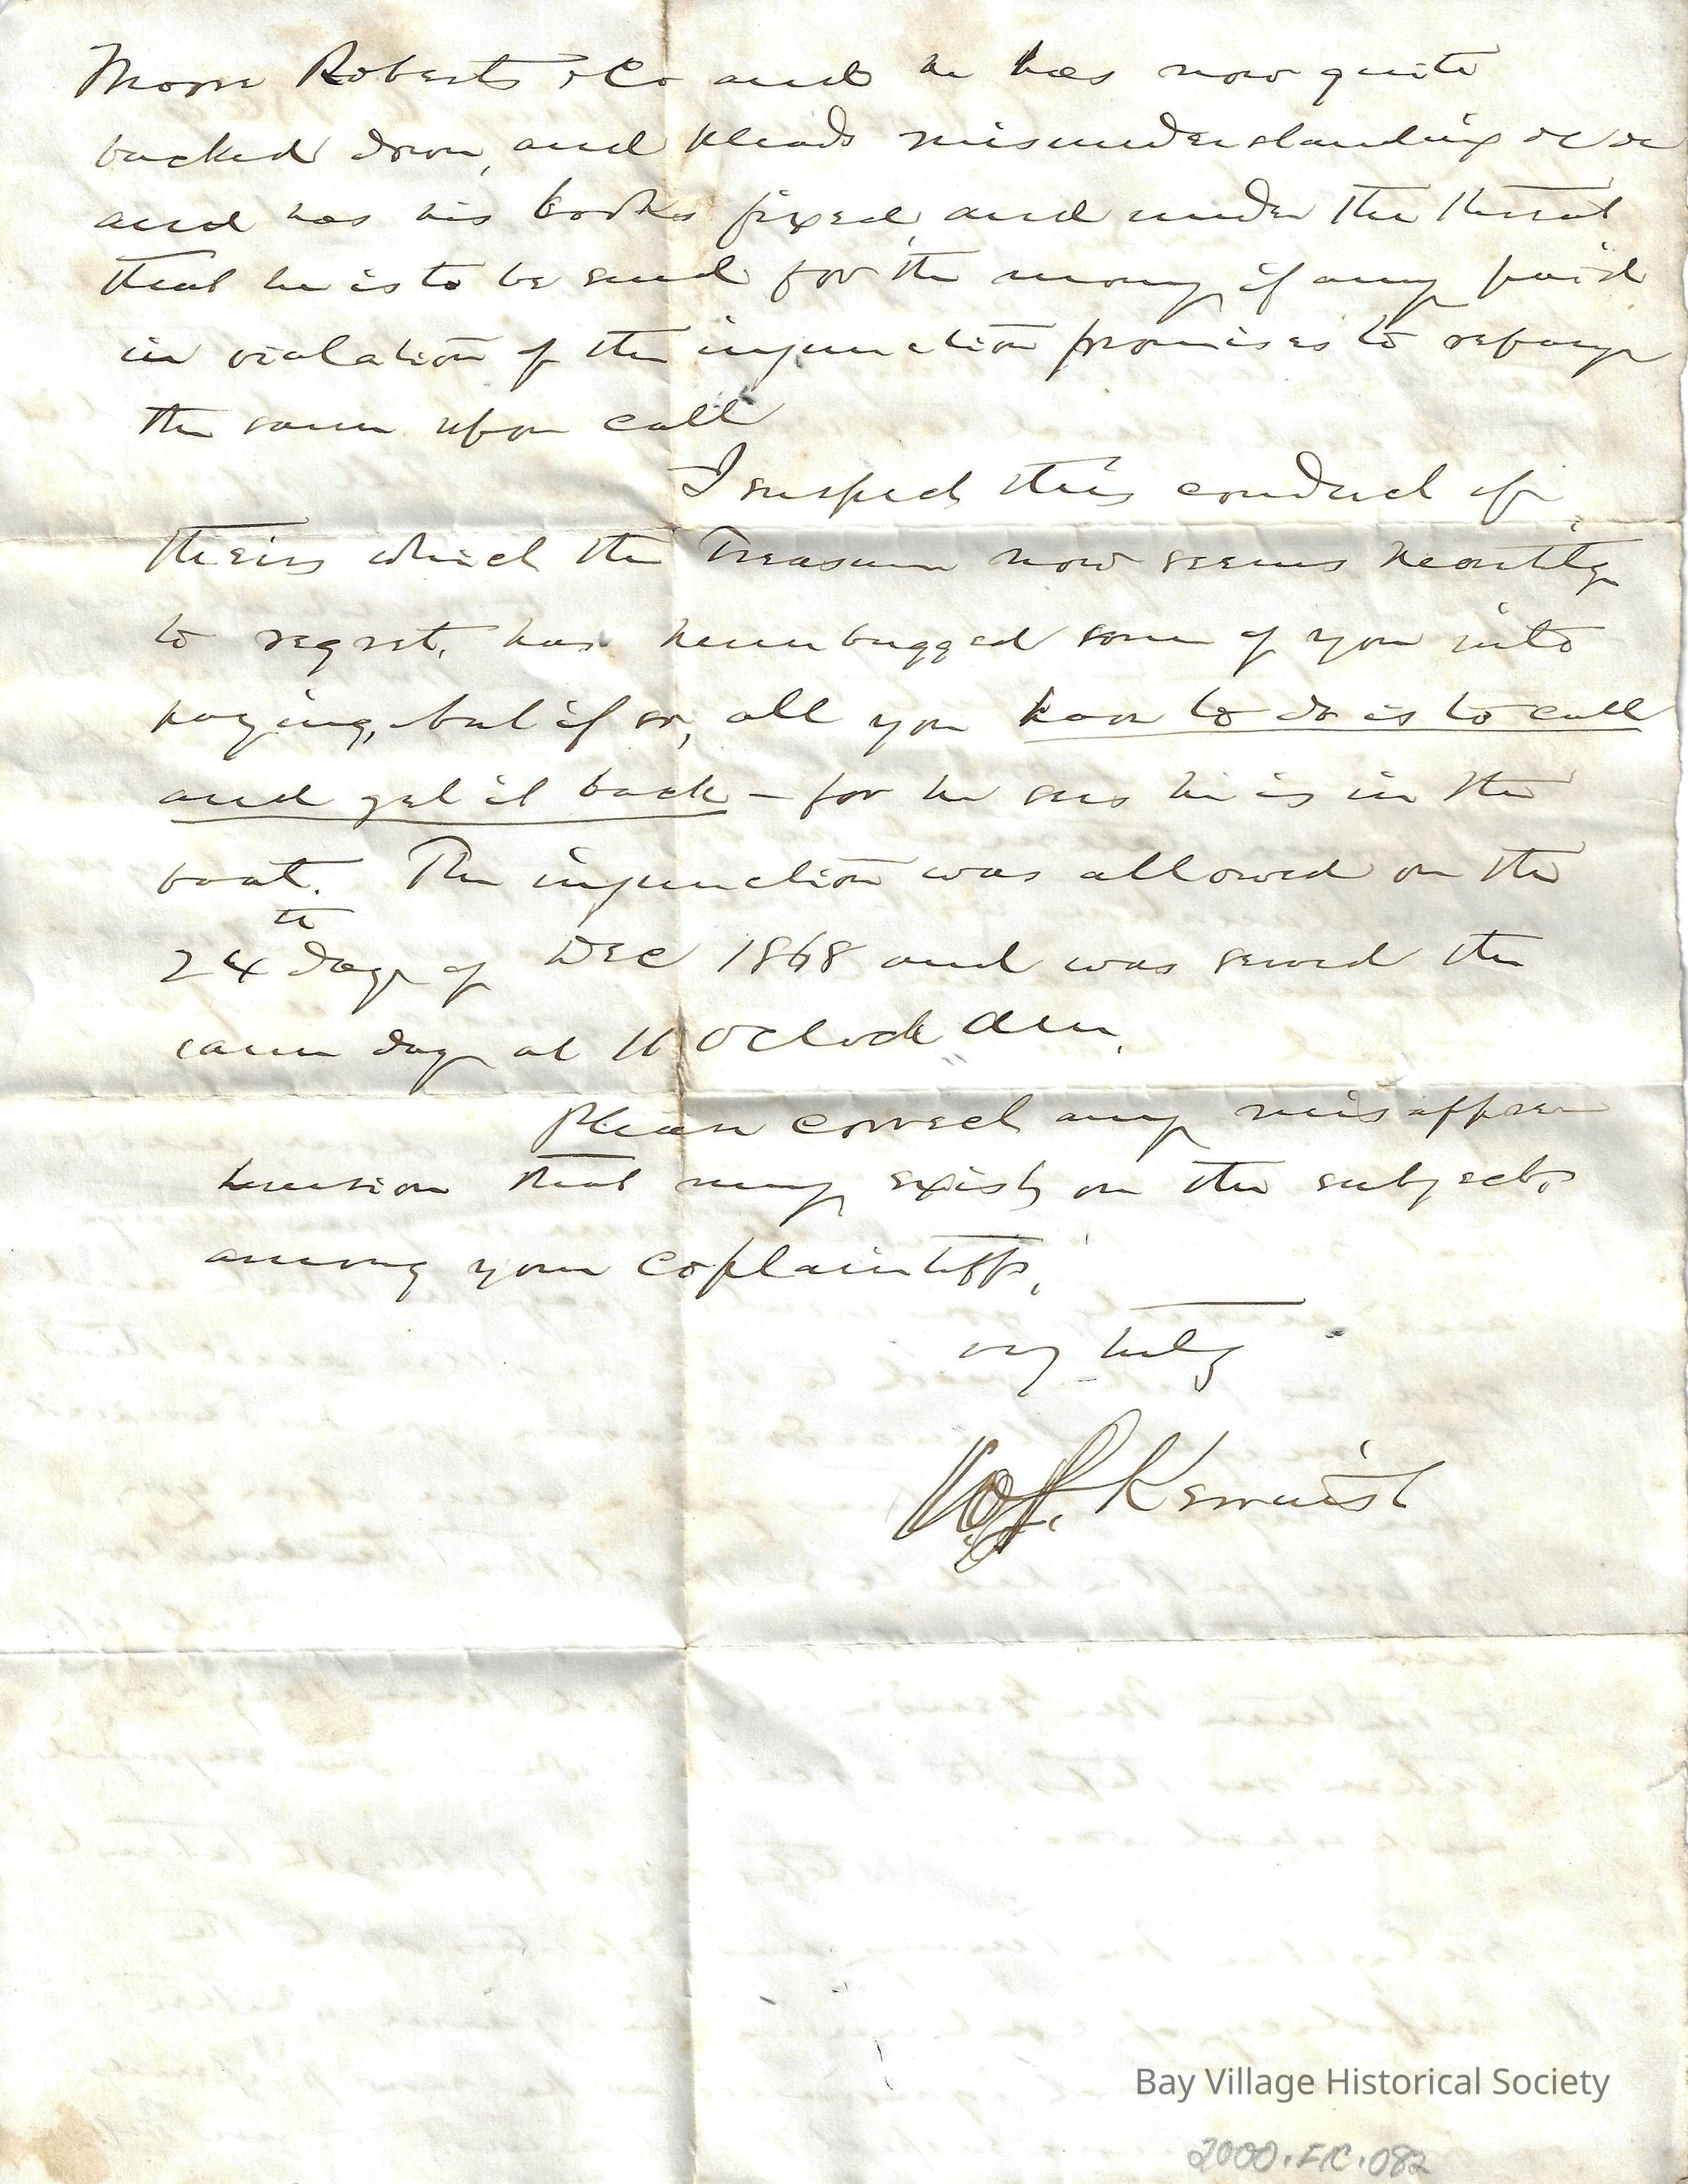 Morse Roberts & Co and he has now quite
backed down, and pleads misunderstanding &c &c
and has his books fixed, and under the threat
that he is to be sued for the money if any paid
in violation of the injunction promises to refay
the same upon call
I suspect this conduct of
theirs which the Treasurer now seems heartily
to regret, has humbugged some of you into
paying, but if so, all you have to do is to call
and get it back – for he sees he is in the
boat. The injunction was allowed on the
24th day of Dec 1868 and was served the
same day at 11 OClock Am.
Please correct any misappre
hension that may exist, on the subject,
among your coplaintiffs.
very truly
Kerruish
Bay Village Historical Society
2000.FIC.082